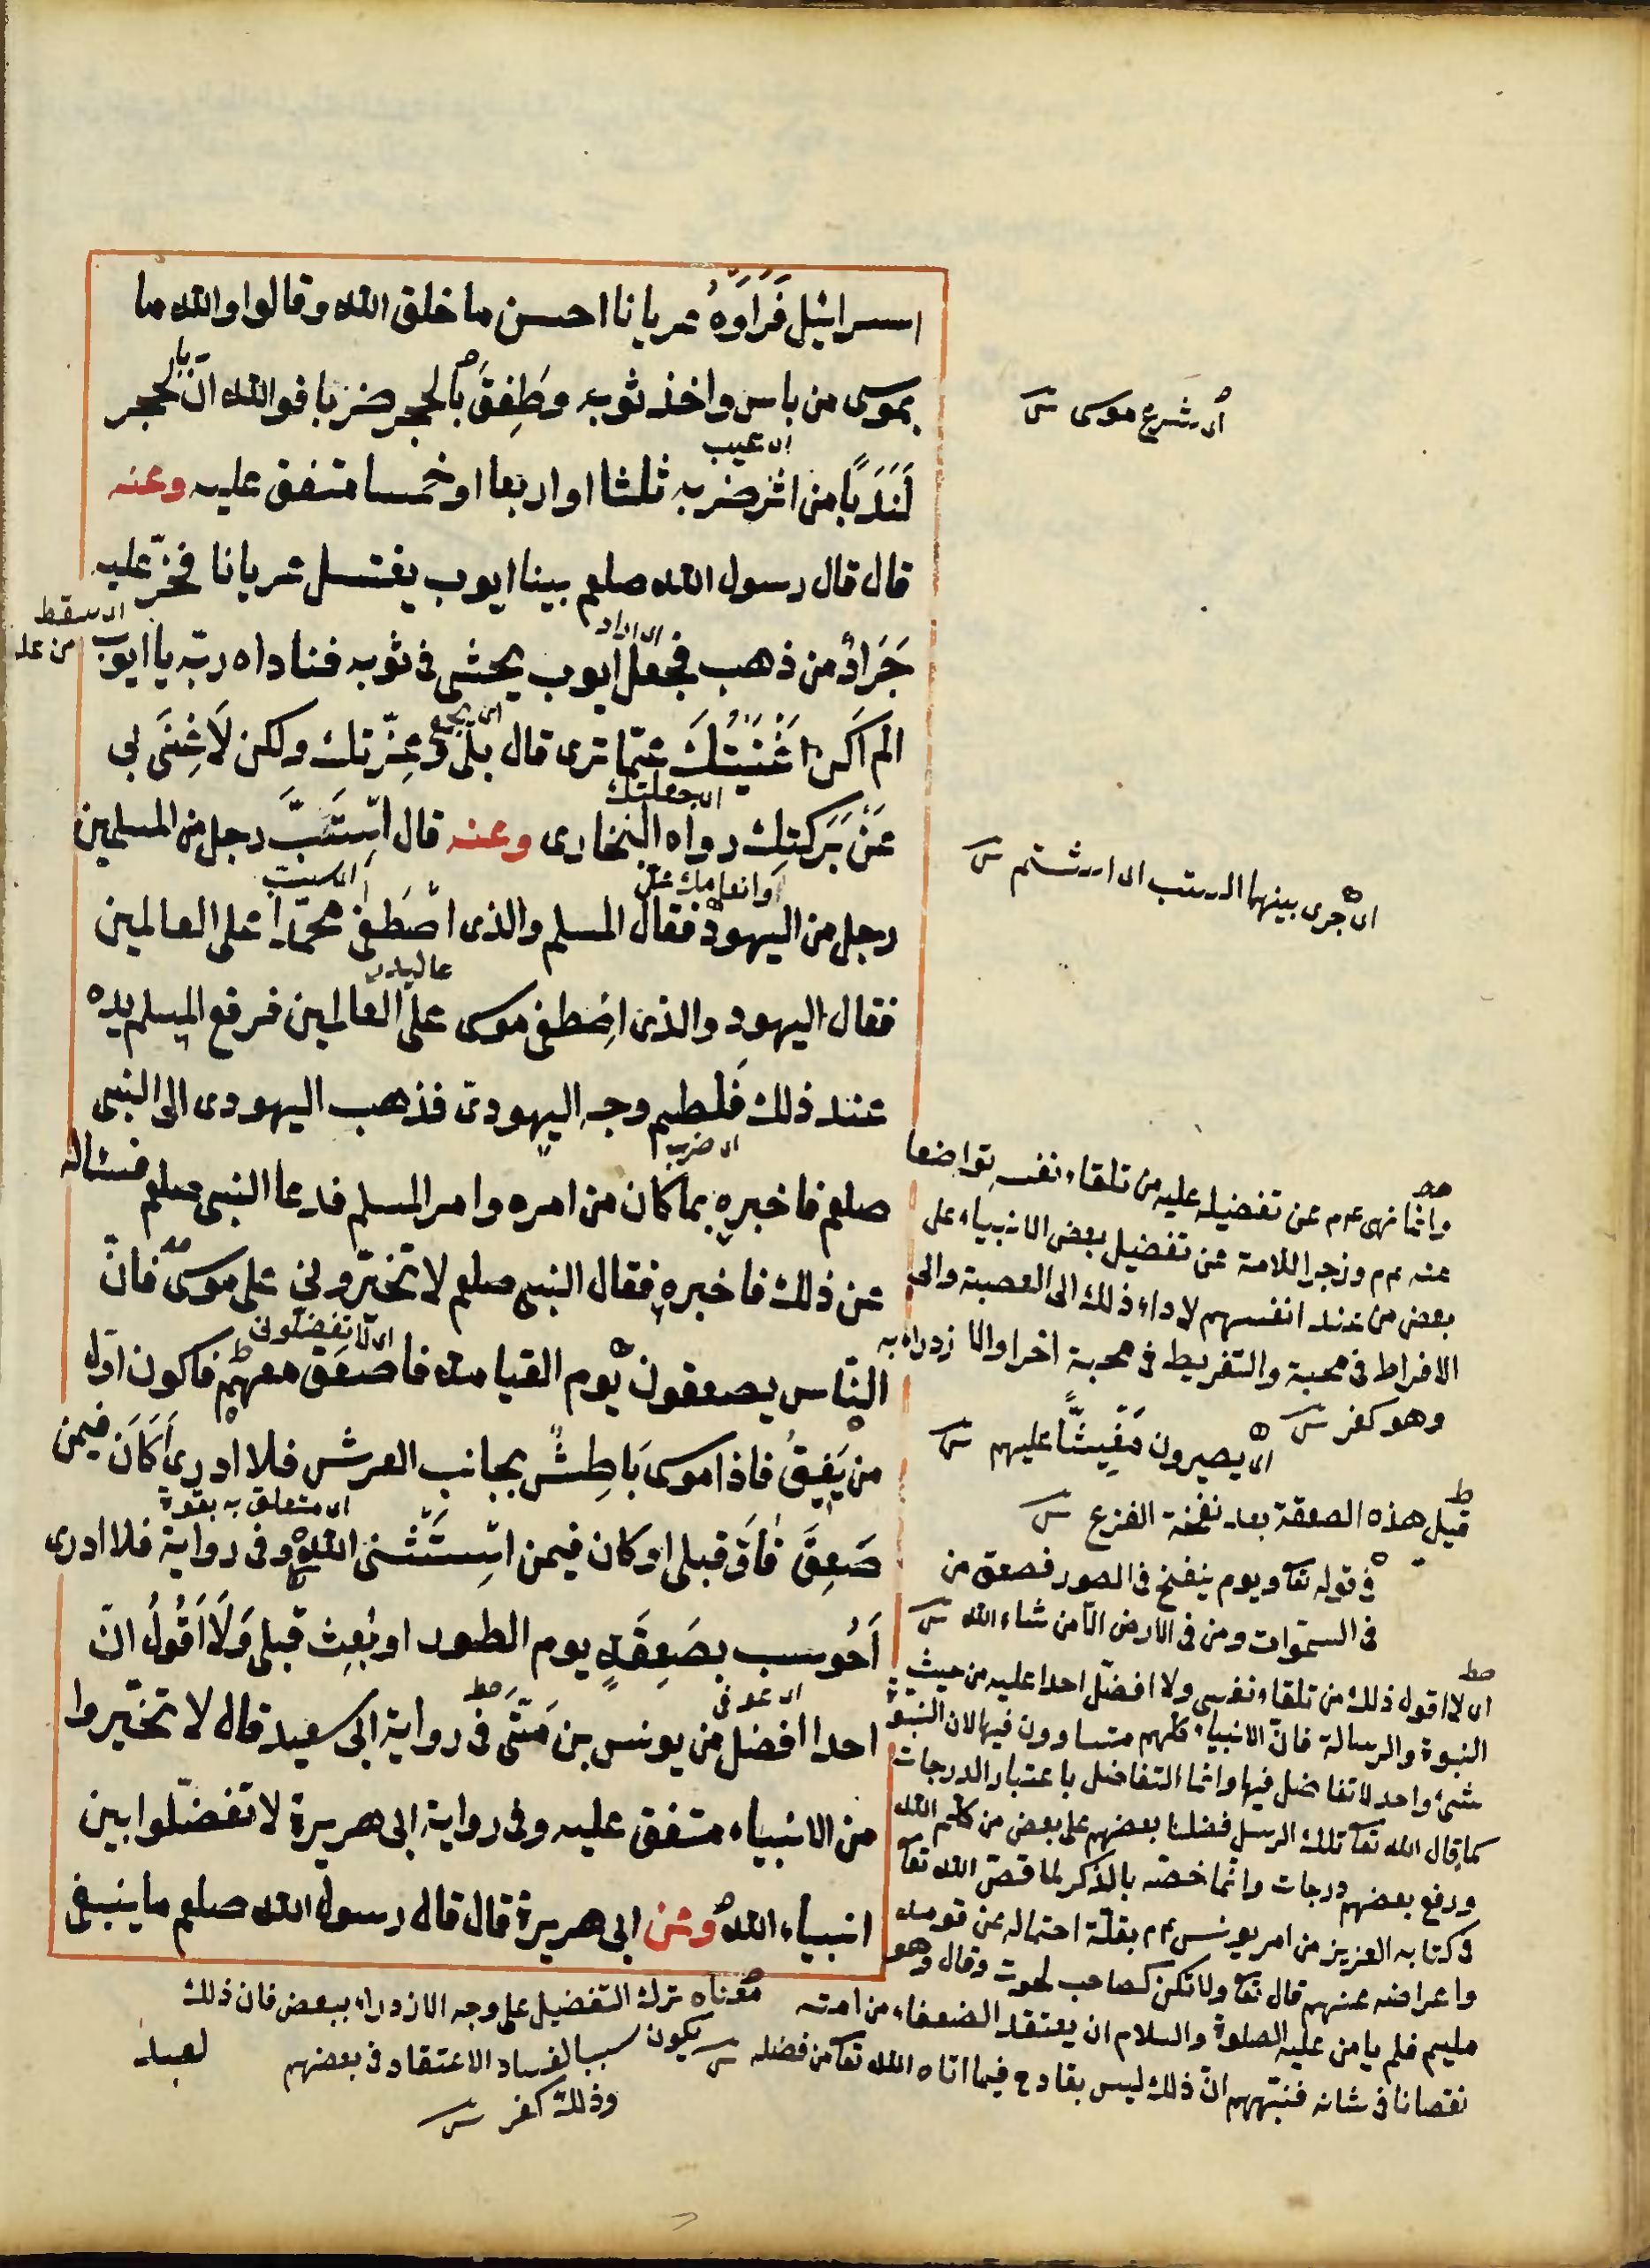 اسرائيل فَرَأَوْهُ عريانا احسن ما خلق الله وقالوا والله ما
بموسى من باس واخذ ثوبه وطَفِقَ بالحجر ضربا فوالله انّ بالحجر
اى شرع موسى
لَنَدَبًا من اثر ضربه ثلثا او اربعا او خمسا متفق عليه وعنه
اى عيب
قال قال رسول الله صلعم بينا ايوب يغتسل عريانا فخرّ عليه
اى سقط
من علو
جَرَادٌ من ذهب فجعل ايوب يحثى فى ثوبه فناداه ربّه يا ايوب
اى اراد
الم اكن اَغْنَيْتُكَ عمّا ترى قال بلى وعِزّتك ولكن لَا غِنَى بى
اى يجمع
اى جعلتك
عَنْ بَرَكتِك رواه البخارى وعنه قال اسْتَبَّ رجل من المسلمين
اى جرى بينهما السب اى الشتم
رجل من اليهود فقال المسلم والذى اصْطَفى محمّدا على العالمين
وانعامك
فقال اليهود والذى اصْطفى موسى على العالمين فرفع المسلم يده
عند ذلك فَلطم وجه اليهودىّ فذهب اليهودى الى النبى
صلعم فاخبره بما كان من امره وامر المسلم فدعا النبى صلعم فسئاله
اى ضرب
عن ذلك فاخبره فقال النبى صلعم لا تخيّرونى على موسى فانّ
النّاس يصعقون يوم القيامة فاصعَق معهم فاكون اوّل
اى لا تفضّلونى
من يُفِيقُ فاذا موسى بَاطِشٌ بجانب العرش فلا ادرى أَكَانَ فيمن
صَعِقَ فأفاق قبلى او كان فيمن اسْتَثنى الله وفى رواية فلا ادرى
اى متعلق به بقوة
اَحُوسب بصَعِقَةِ يوم الطور او بُعِث قبلى وَلَا اَقُولُ انّ
احدا افضل من يونس بن مَتَّى فى رواية ابى سعيد قال لا تخيّروا
اى عوفى
من الانبياء متفق عليه وفى رواية ابى هريرة لا تفضّلوا بين
انبياء الله وعن ابى هريرة قال قال رسول الله صلعم ما ينبغى
وانما نهى عم عن تفضيله عليه من تلقاء نفسه تواضعا
عنه عم وزجرا للامة عن تفضيل بعض الانبياء على
بعض من عند انفسهم لاداء ذلك الى العصبة والى
الافراط فى محبة والتفريط فى محبة اخر او الازدراء به
وهو كفر
اى يصيرون مغشيًّا عليهم
قيل هذه الصعقة بعد نفخة الفزع
فى قوله تعا ويوم ينفخ فى الصور فصعق من
فى السموات ومن فى الارض الا من شاء الله
اى لا اقول ذلك من تلقاء نفسى ولا افضل احدا عليه من حيث
النبوة والرسالة فانّ الانبياء كلهم متساوون فيها لان النبوة
شئ واحد لا تفاضل فيها وانما التفاضل باعتبار الدرجات
كما قال الله تعا تلك الرسل فضلنا بعضهم على بعض من كلّم الله
ورفع بعضهم درجات وانّما خصّه بالذكر لما قصّ الله تعا
فى كتابه العزيز من امر يونس عم بقلّة احتماله عن قومه
واعراضه عنهم قال تعا ولا تكن كصاحب الحوت وقال وهو
مليم فلم يامن عليه الصلوة والسلام ان يعتقد الضعفاء من امته
نقصانا فى شانه فنبّههم انّ ذلك ليس بقادح فيما اتاه الله تعا من فضله
معناه ترك التفضيل على وجه الازدراء ببعض فان ذلك
يكون سببا لفساد الاعتقاد فى بعضهم
وذلك كفر
لعبد